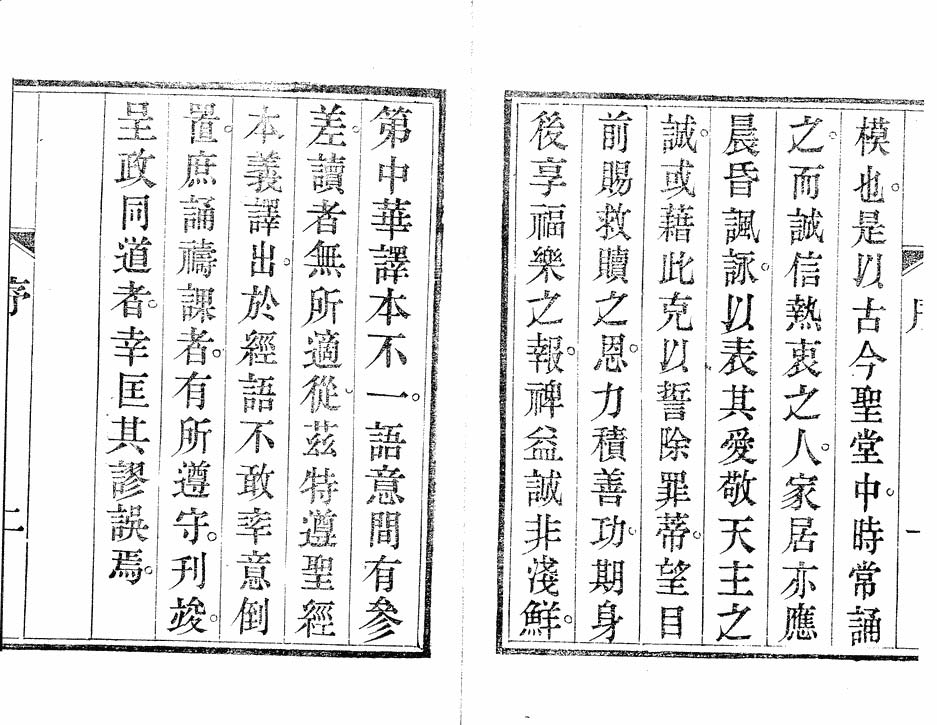 模也。是以古今聖堂中。時常誦
之。而誠信熱衷之人。家居亦應
晨昏諷詠。以表其愛敬天主之
誠。或藉此克以誓除罪蒂。望目
前賜救贖之恩。力積善功。期身
後享福樂之報。裨益誠非淺鮮。
第中華譯本不一。語意間有參
差。讀者無所適從。茲特遵聖經
本義譯出。於經語不敢率意倒
置。庶誦禱課者。有所遵守。刊竣。
呈政同道者。幸匡其謬誤焉。
序
二